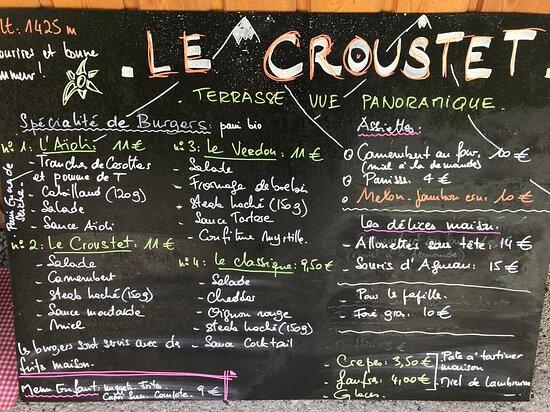 lt. 1425 m
ourires et bonne
umeur!
. LE CROUSTET.
. TERRASSE VUE PANORAMIQUE.
Spécialité de Burgers: pain bio
n° 1: L'Aïoli: 11€
- Tranche de Carottes
et pomme de T
- Cabillaud (120g)
- Salade
- Sauce Aïoli
n° 2: Le Croustet: 11€
- Salade
- Camembert
- Steak haché (150g)
- Sauce moutarde
- Miel
n° 3: Le Verdon: 11€
- Salade
- Fromage de brebis
- Steak haché (150g)
- Sauce Tartare
- Confiture Myrtille
n° 4: Le classique: 9,50€
- Salade
- Cheddar
- Oignon rouge
- Steak haché (150g)
- Sauce Cocktail
les burgers sont servis avec des
frites maison.
Menu Enfant: nuggets frites
Capri Sun. Compote. 9€
Assiettes
Camembert au four. 10€
(miel à la demande)
Panisse. 4€
Melon. Jambon cru: 10€
Les délices maison.
- Allouettes sans tête: 14€
- Souris d'Agneau: 15€
- Foie gras: 10€
- Crêpes: 3,50€
- Gaufres: 4,00€
- Glaces.
Pate à tartiner
maison